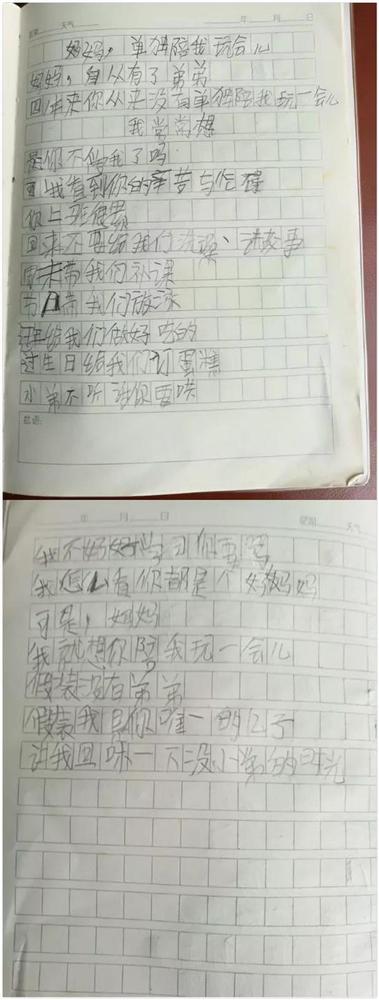 星期 天气 年 月 日
妈妈，单独陪我玩会儿
妈妈，自从有了弟弟
四年来你从来没有单独陪我玩一会儿
我常常想
是你不爱我了吗
可我看到你的辛苦与忙碌
你上班很累
回来不要给我们洗澡、讲故事
周末带我们补课
节日带我们放松
还给我们做好吃的
过生日给我们订蛋糕
小弟不听话你要哄
批语:
年 月 日 星期 天气
我不好好学习你要骂
我怎么看你都是个好妈妈
可是，妈妈
我就想你陪我玩一会儿
假装没有弟弟
假装我是你唯一的儿子
让我回味一下没小弟的时光